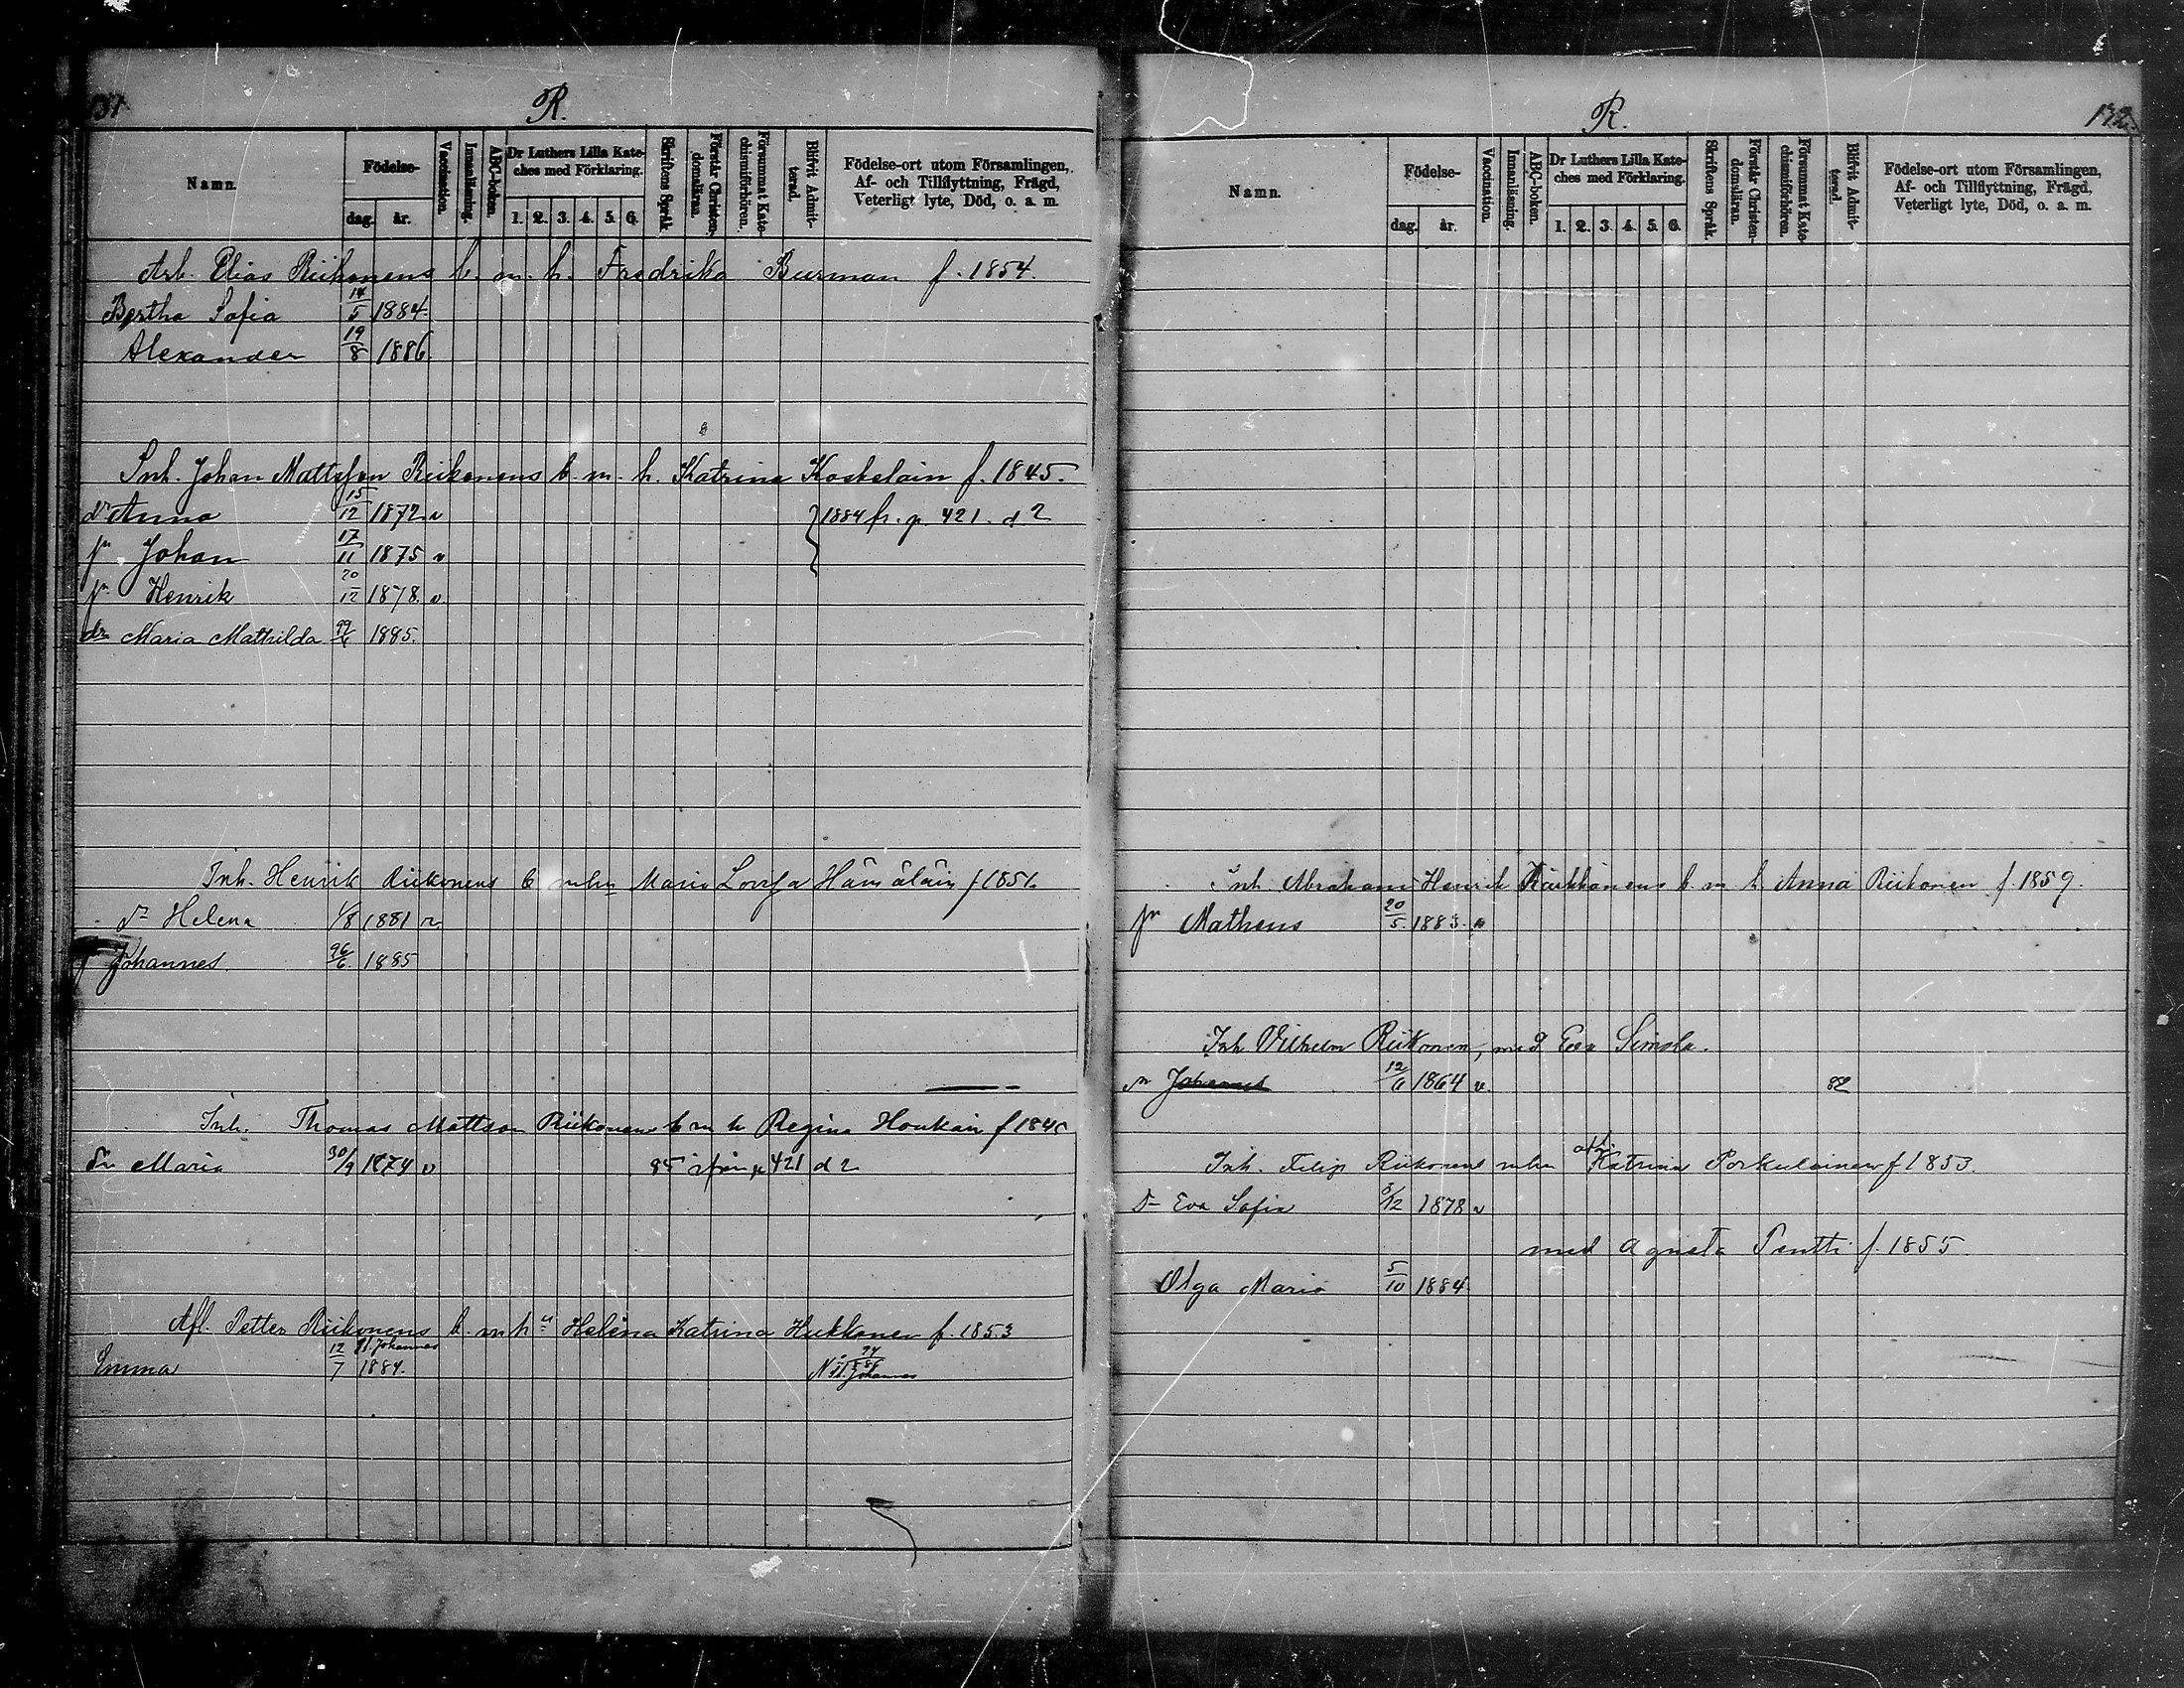 R.
Namn.
Födelse-
dag.
år.
Vaccination.
Innanläsning.
ABC-boken.
Dr Luthers Lilla Kate-
ches med Förklaring.
1. 2. 3. 4. 5. 6.
Skriftens Språk.
Förstår Christen-
domsläran.
Försummat Kate-
chismiförhören.
Blifvit Admit-
terad.
Födelse-ort utom Församlingen,
Af- och Tillflyttning, Frägd,
Veterligt lyte, Död, o. a. m.
Arb. Elias Riikonens b. m. h. Fredrika Burman f. 1854.
Bertha Sofia 14/5 1884.
Alexander 19/8 1886.
Inh. Johan Mattsson Riikonens b. m. h. Katrina Koskelain f. 1845.
dr Anna 15/12 1872 v 1884 fr. p. 421. d 2
sn Johan 17/11 1875 v
sn Henrik 20/12 1878. v.
dr Maria Mathilda 1885.
Inh. Henrik Riikonens b m hu Maria Lovisa Hämäläin f 1851.
dr Helena 1/8 1881 v.
Johannes 26/6 1885
Inh. Thomas Mattson Riikonens b m h Regina Houkain f 184
dr Maria 30/9 1874 v 85 ifrån p 421 d 2
Afl. Petter Riikonens b. m h Helena Katrina Hukkanen f. 1853
St. Johannes
Emma 12/7 1884.
St. Johannes
R.
132.
Namn.
Födelse-
dag.
år.
Vaccination.
Innanläsning.
ABC-boken.
Dr Luthers Lilla Kate-
ches med Förklaring.
1. 2. 3. 4. 5. 6.
Skriftens Språk.
Förstår Christen-
domsläran.
Försummat Kate-
chismiförhören.
Blifvit Admit-
terad.
Födelse-ort utom Församlingen,
Af- och Tillflyttning, Frägd,
Veterligt lyte, Död, o. a. m.
Inh. Abraham Henrik Kärkkänens b. m h. Anna Riikonen f. 1859.
sn Matheus 20/5 1883. v
Inh Vilhelm Riikonen, med Eva Simola.
sn Johannes 12/6 1864 v. 82
Inh. Filip Riikonens m hu afl. Katrina Porkulainen f 1853.
dr Eva Sofia 8/12 1878 v
med Agneta Pentti f. 1855
Olga Maria 5/10 1884